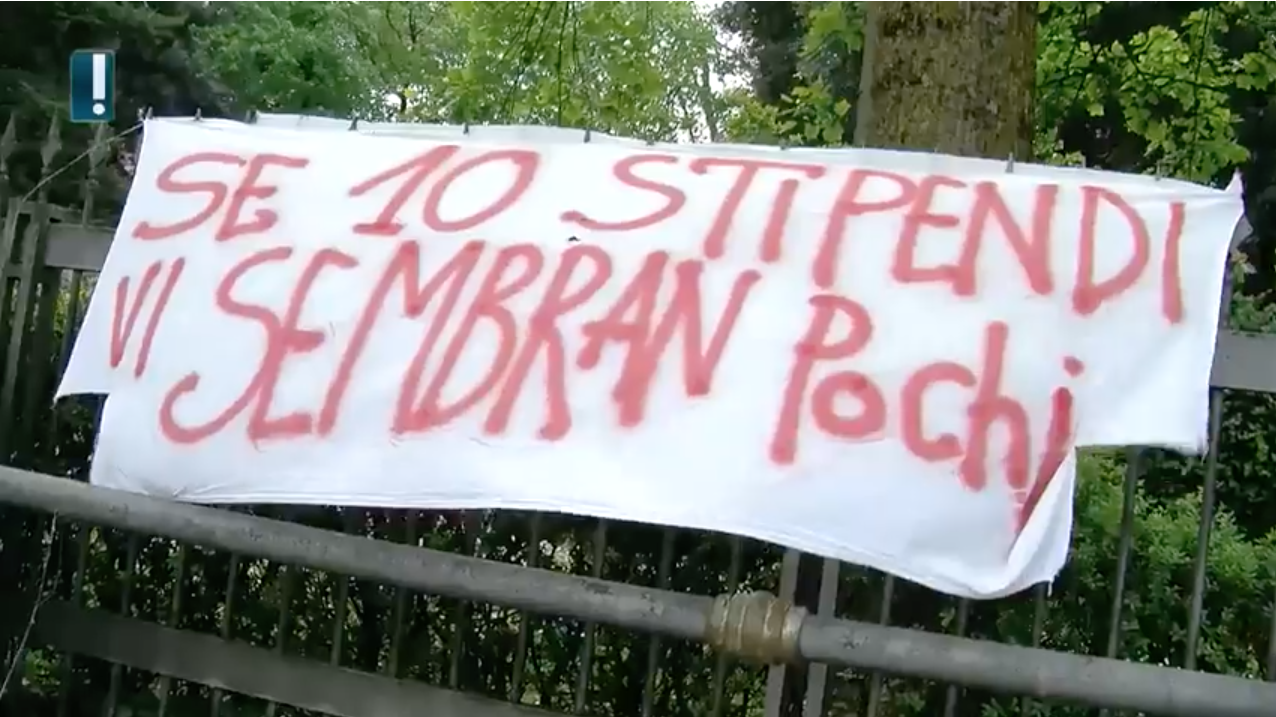 SE 10 STIPENDI
VI SEMBRAN Pochi